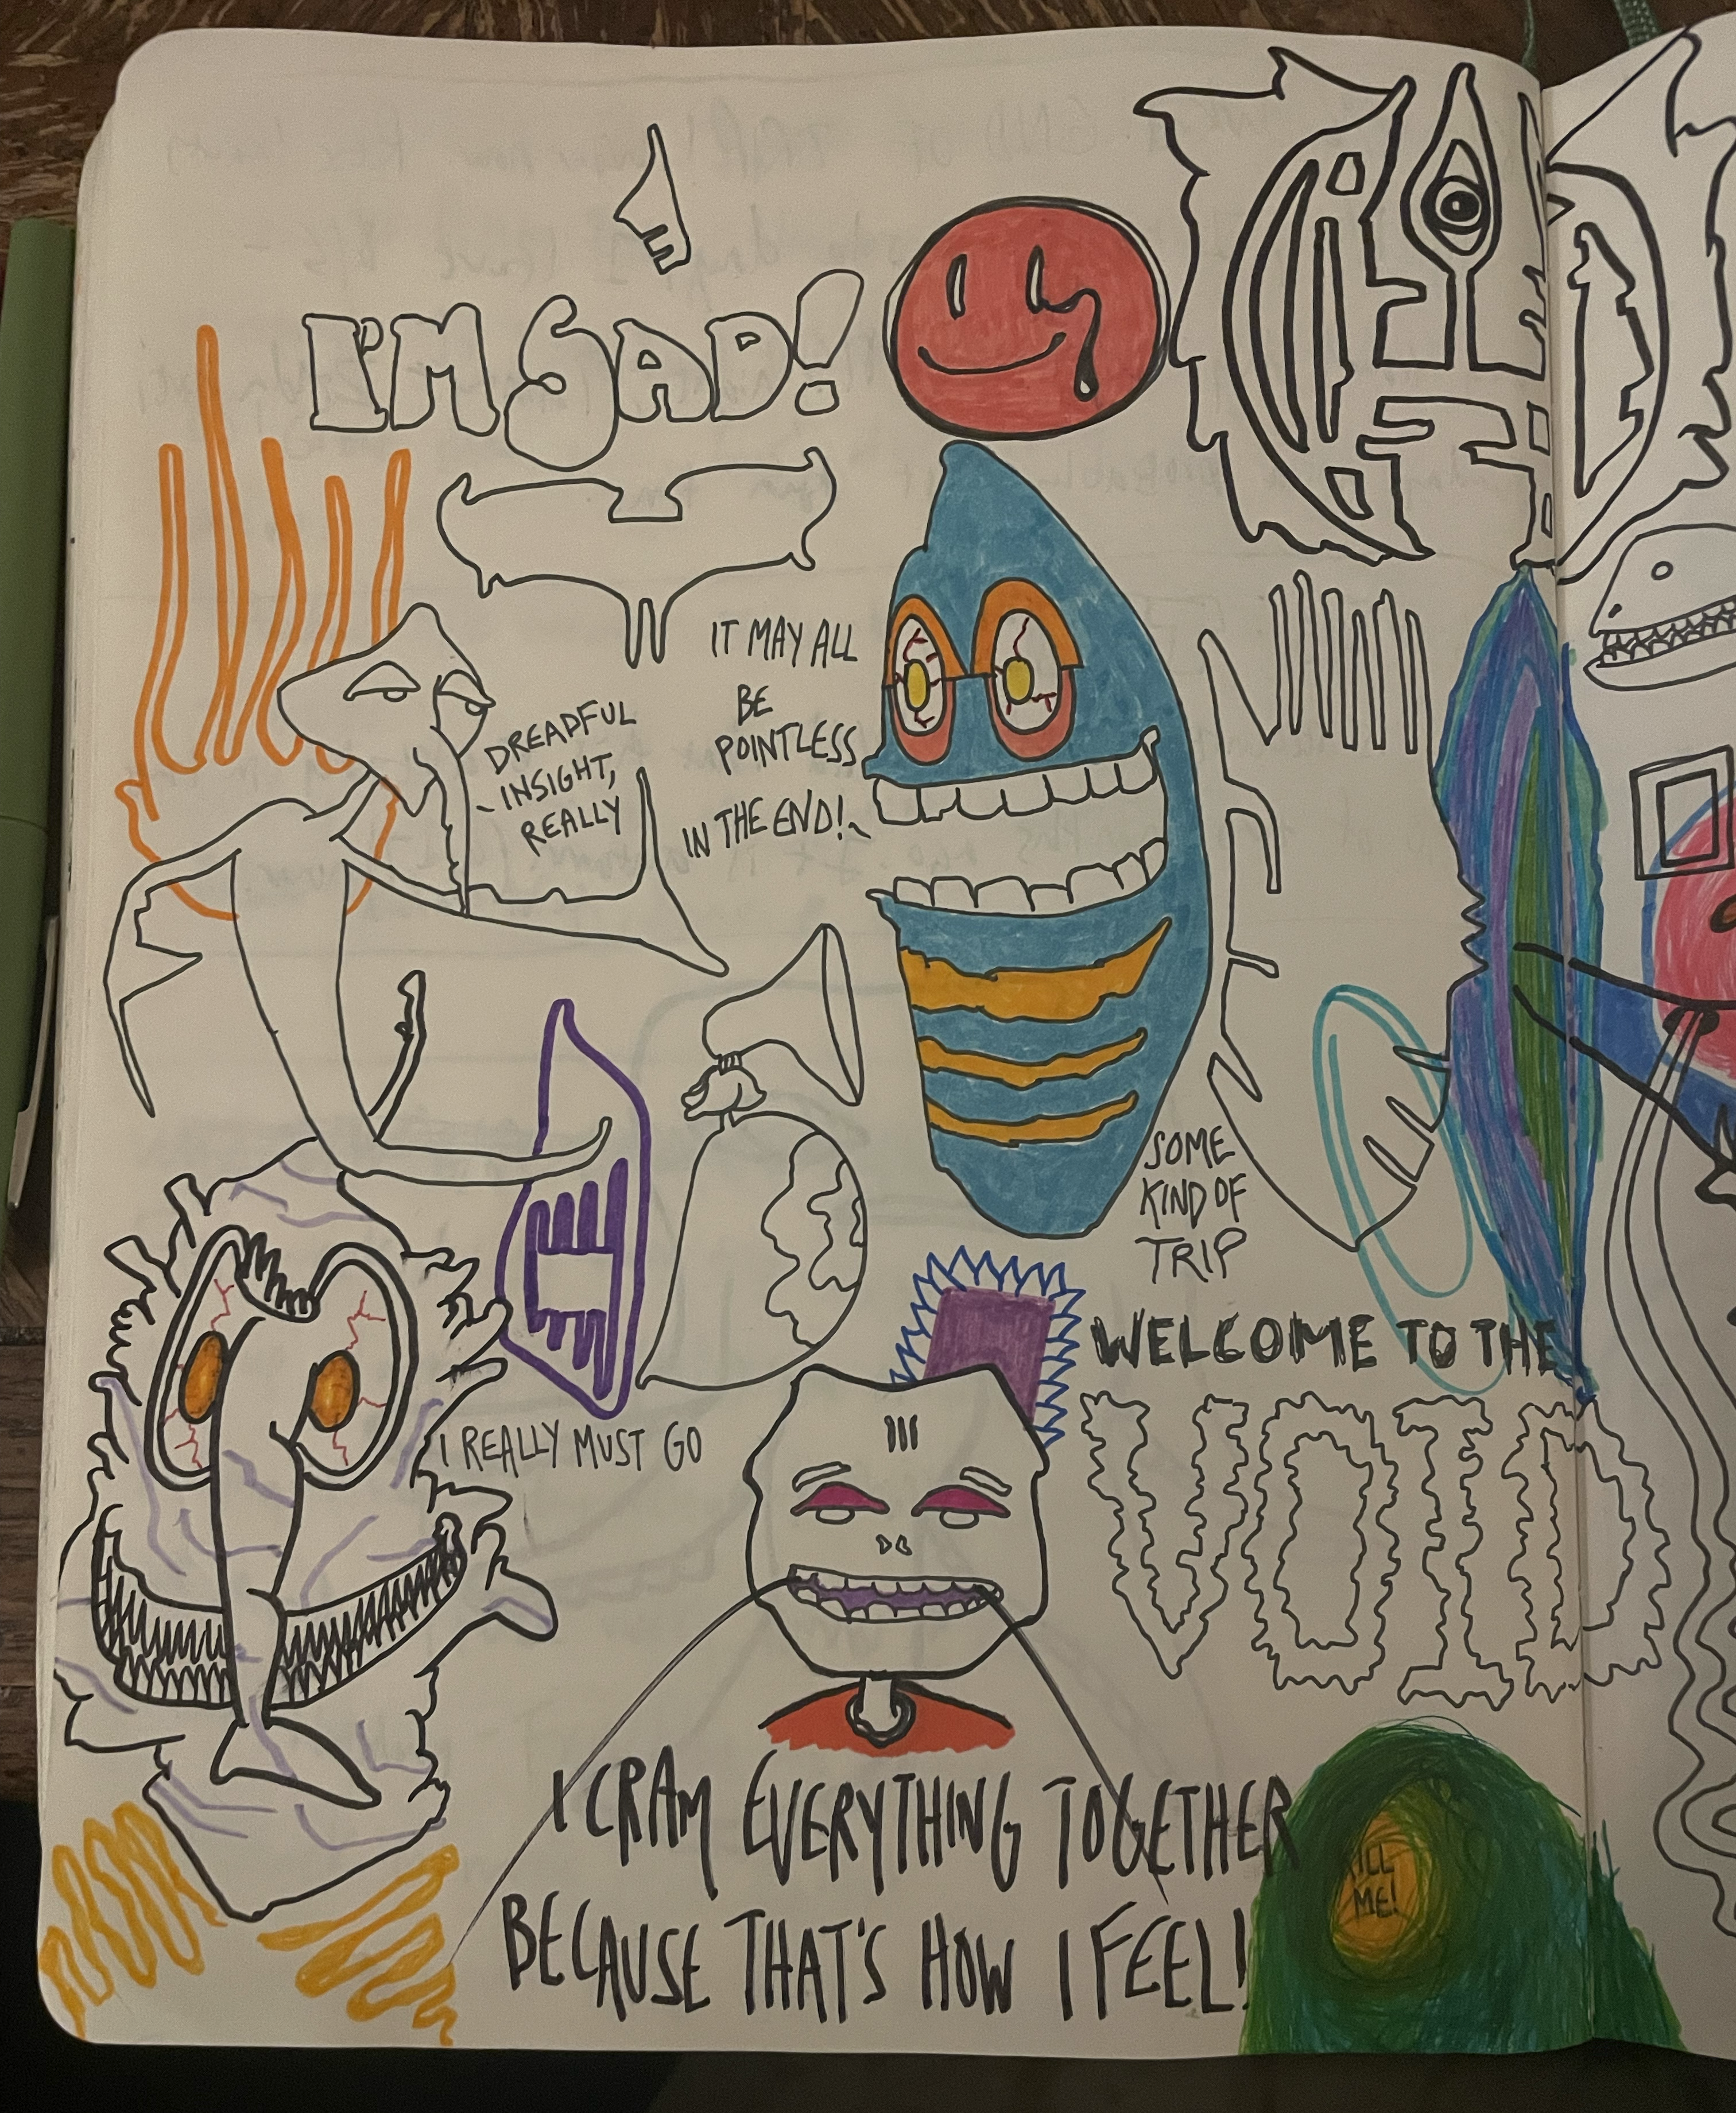 I'M SAD!
IT MAY ALL
BE
POINTLESS
IN THE END!
DREADFUL
INSIGHT,
REALLY
SOME
KIND OF
TRIP
WELCOME TO THE
VOID
I REALLY MUST GO
I CRAM EVERYTHING TOGETHER
BECAUSE THAT'S HOW I FEEL!
KILL
ME!